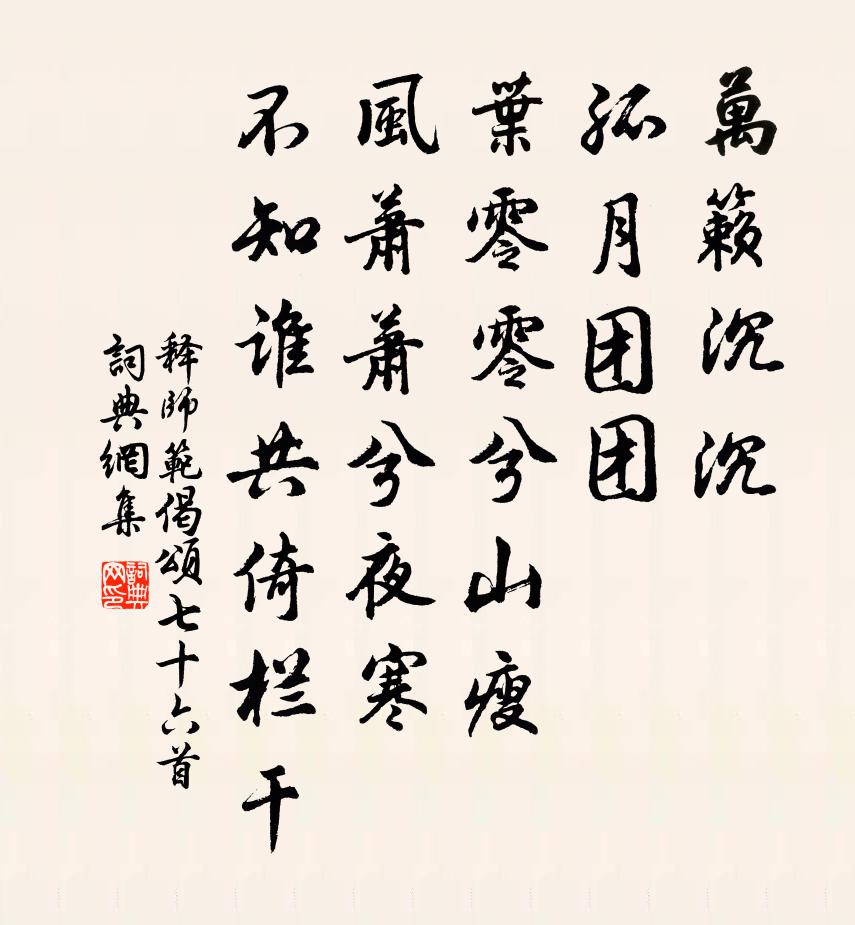 萬籟沉沉
孤月团团
葉零零兮山瘦
風蕭蕭兮夜寒
不知誰共倚栏干
释師範偈頌七十六首
詞典網集
詞典网印